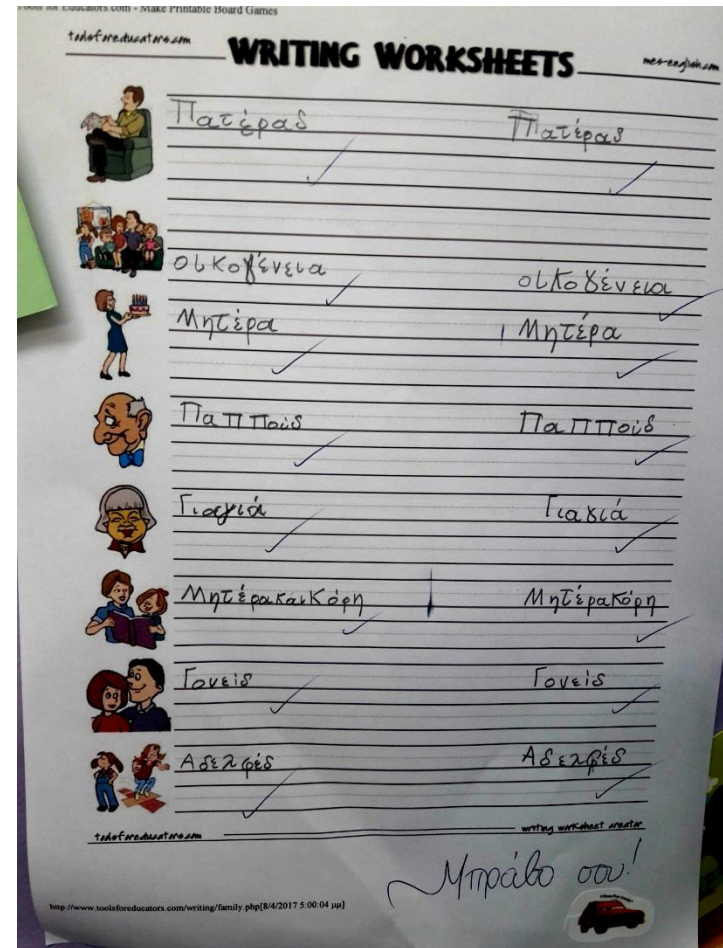 Tools for Educators.com - Make Printable Board Games
toolsforeducators.com WRITING WORKSHEETS mes-english.com
Πατέρας Πατέρας
οικογένεια οικογένεια
Μητέρα Μητέρα
Παππούς Παππούς
Γιαγιά Γιαγιά
Μητέρα και Κόρη Μητέρα Κόρη
Γονείς Γονείς
Αδελφές Αδελφές
toolsforeducators.com writing worksheet creator
Μπράβο σου!
http://www.toolsforeducators.com/writing/family.php[8/4/2017 5:00:04 μμ]